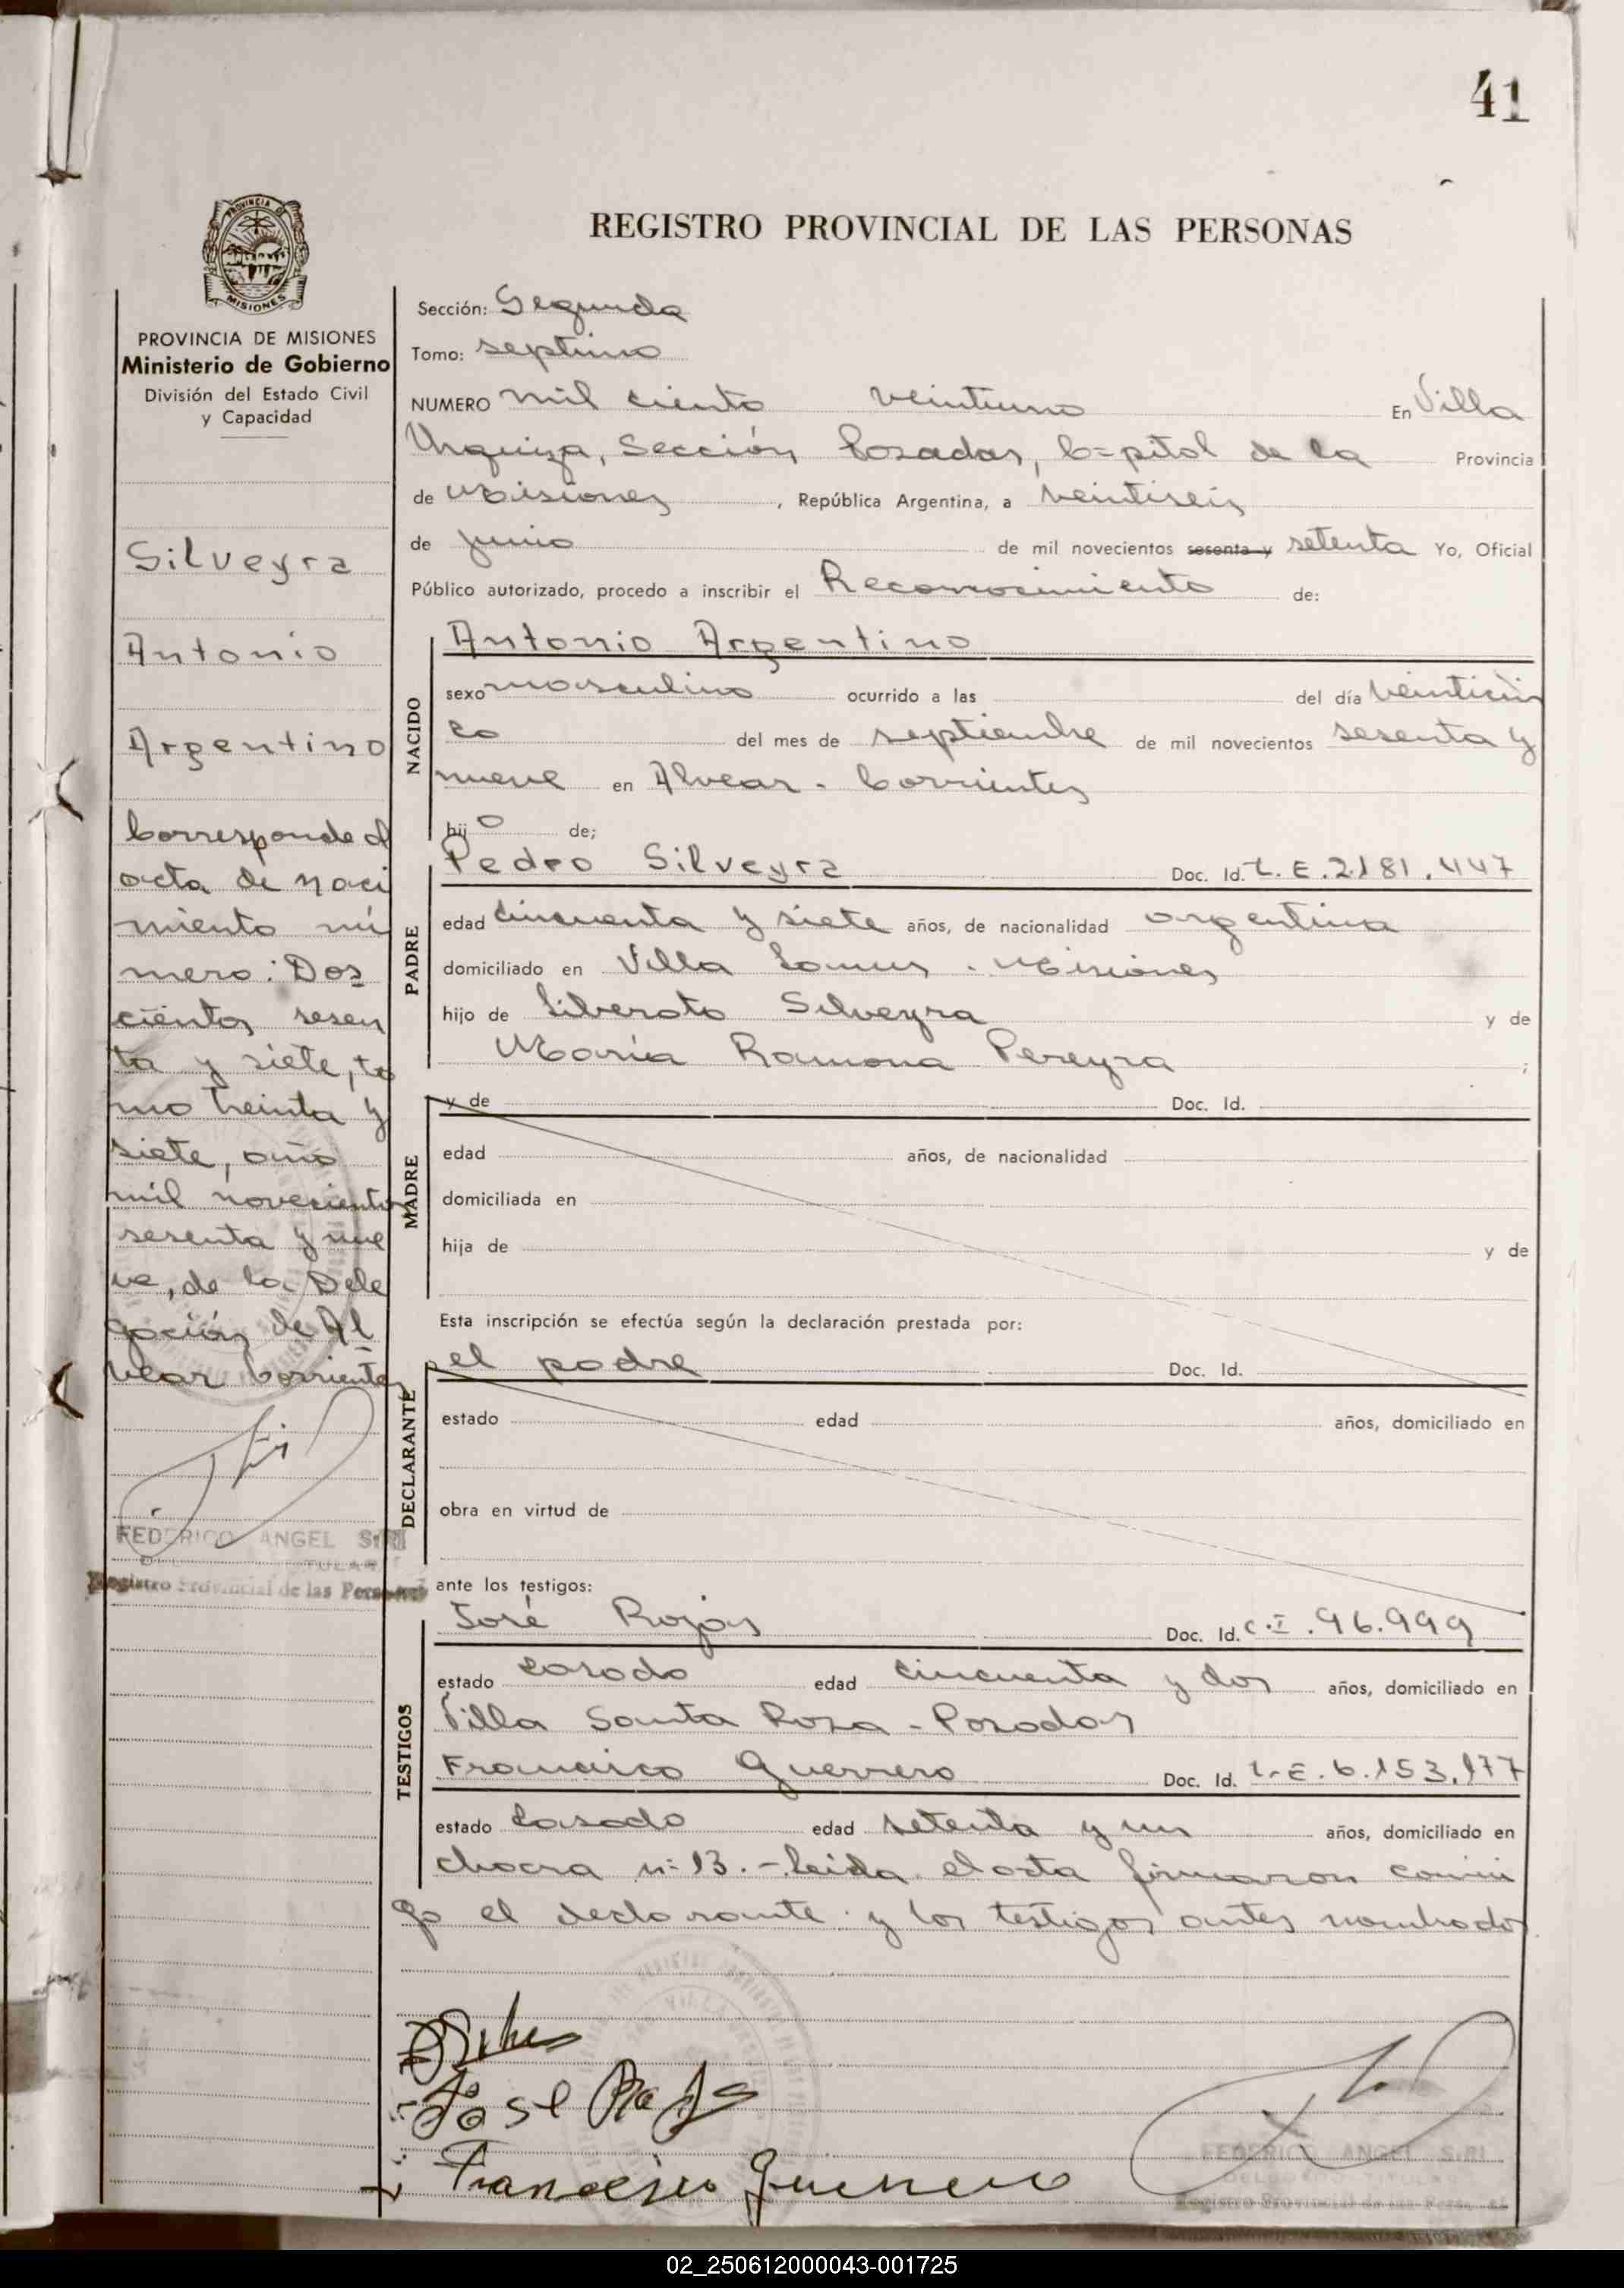 41
REGISTRO PROVINCIAL DE LAS PERSONAS
PROVINCIA DE
MISIONES
PROVINCIA DE MISIONES
Ministerio de Gobierno
División del Estado Civil
y Capacidad
Silveyra
Antonio
Argentino
Corresponde al
acta de naci
miento nú
mero: Dos
cientos sesen
ta y siete, to
mo treinta y
siete, año
mil novecientos
sesenta y nue
ve, de la Dele
gación de Al
vear Corrientes
FEDERICO ANGEL SIRI
TITULAR
Registro Provincial de las Personas
Sección: Segunda
Tomo: septimo
NUMERO mil ciento veintiuno En Villa
Urquiza, Sección Posadas, Capital de la Provincia
de Misiones, República Argentina, a veintiseis
de junio de mil novecientos sesenta y setenta Yo, Oficial
Público autorizado, procedo a inscribir el Reconocimiento de:
NACIDO
Antonio Argentino
sexo masculino ocurrido a las del día veinticin
co del mes de septiembre de mil novecientos sesenta y
nueve en Alvear - Corrientes
hijo de;
PADRE
Pedro Silveyra Doc. Id. L.E.2181.447
edad cincuenta y siete años, de nacionalidad argentina
domiciliado en Villa Lanus - Misiones
hijo de Liberato Silveyra y de
María Ramona Pereyra ;
MADRE
y de Doc. Id.
edad años, de nacionalidad
domiciliada en
hija de y de
Esta inscripción se efectúa según la declaración prestada por:
DECLARANTE
el padre Doc. Id.
estado edad años, domiciliado en
obra en virtud de
ante los testigos:
TESTIGOS
José Rojas Doc. Id. C.I.96.999
estado casado edad cincuenta y dos años, domiciliado en
Villa Santa Rosa - Posadas
Francisco Guerrero Doc. Id. L.E.6.153.177
estado casado edad setenta y un años, domiciliado en
chacra nº 13.- Leída el acta firmaron conmi
go el declarante y los testigos antes nombrados
José Rojas
Francisco Guerrero
FEDERICO ANGEL SIRI
DELEGADO TITULAR
Registro Provincial de las Personas
02_250612000043-001725